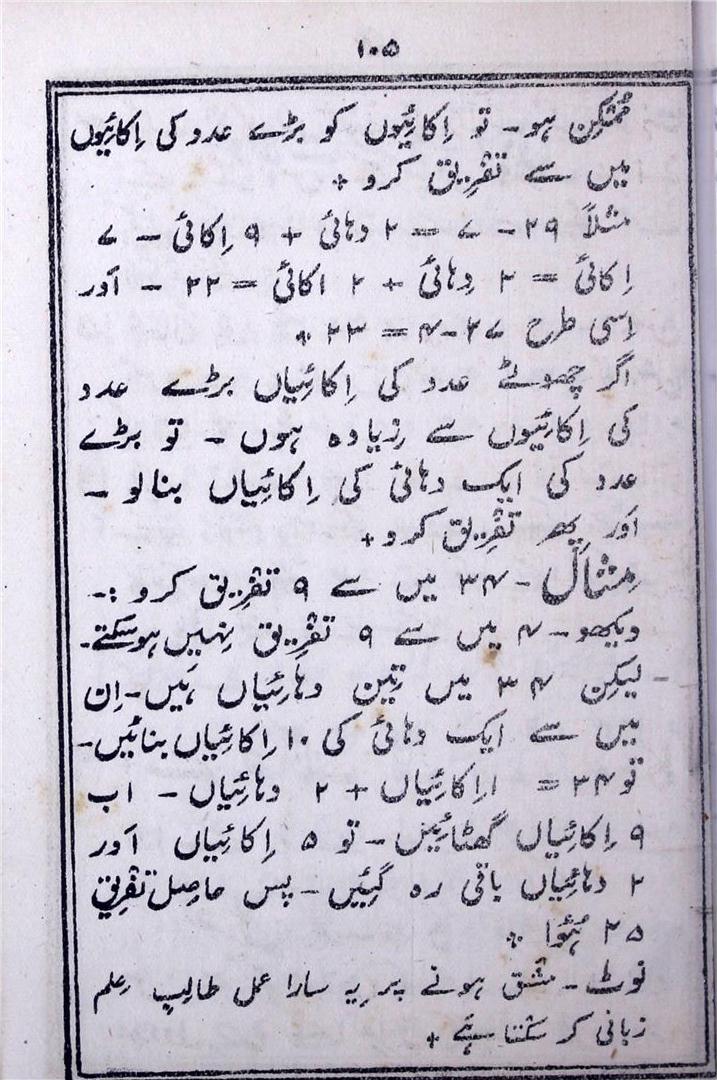 ۱۰۵
مُمکِن ہو۔ تو اِکائیوں کو بڑے عدد کی اِکائیوں
میں سے تفریق کرو +
مثلاً ۲۹ - ۷ = ۲ دہائی + ۹ اِکائی - ۷
اِکائی = ۲ دہائی + ۲ اکائی = ۲۲ - اَور
اِسی طرح ۲۷-۴ = ۲۳ +
اگر چھوٹے عدد کی اِکائیاں بڑے عدد
کی اِکائیوں سے زِیادہ ہوں - تو بڑے
عدد کی ایک دہائی کی اِکائیاں بنالو -
اَور پھر تفریق کرو +
مِثال - ۳۴ میں سے ۹ تفریق کرو :-
دیکھو - ۴ میں سے ۹ تفریق نہیں ہوسکتے -
لیکن ۳۴ میں تین دہائیاں ہَیں - اِن
میں سے ایک دہائی کی ۱۰ اِکائیاں بنائیں -
تو ۳۴ = ۱۴ اِکائیاں + ۲ دہائیاں - اب
۹ اِکائیاں گھٹائیں - تو ۵ اِکائیاں اَور
۲ دہائیاں باقی رہ گئیں - پس حاصل تفریق
۲۵ ہُؤا +
نوٹ - مشق ہونے پر یہ سارا عمل طالبِ عِلم
زبانی کر سکتا ہَے +